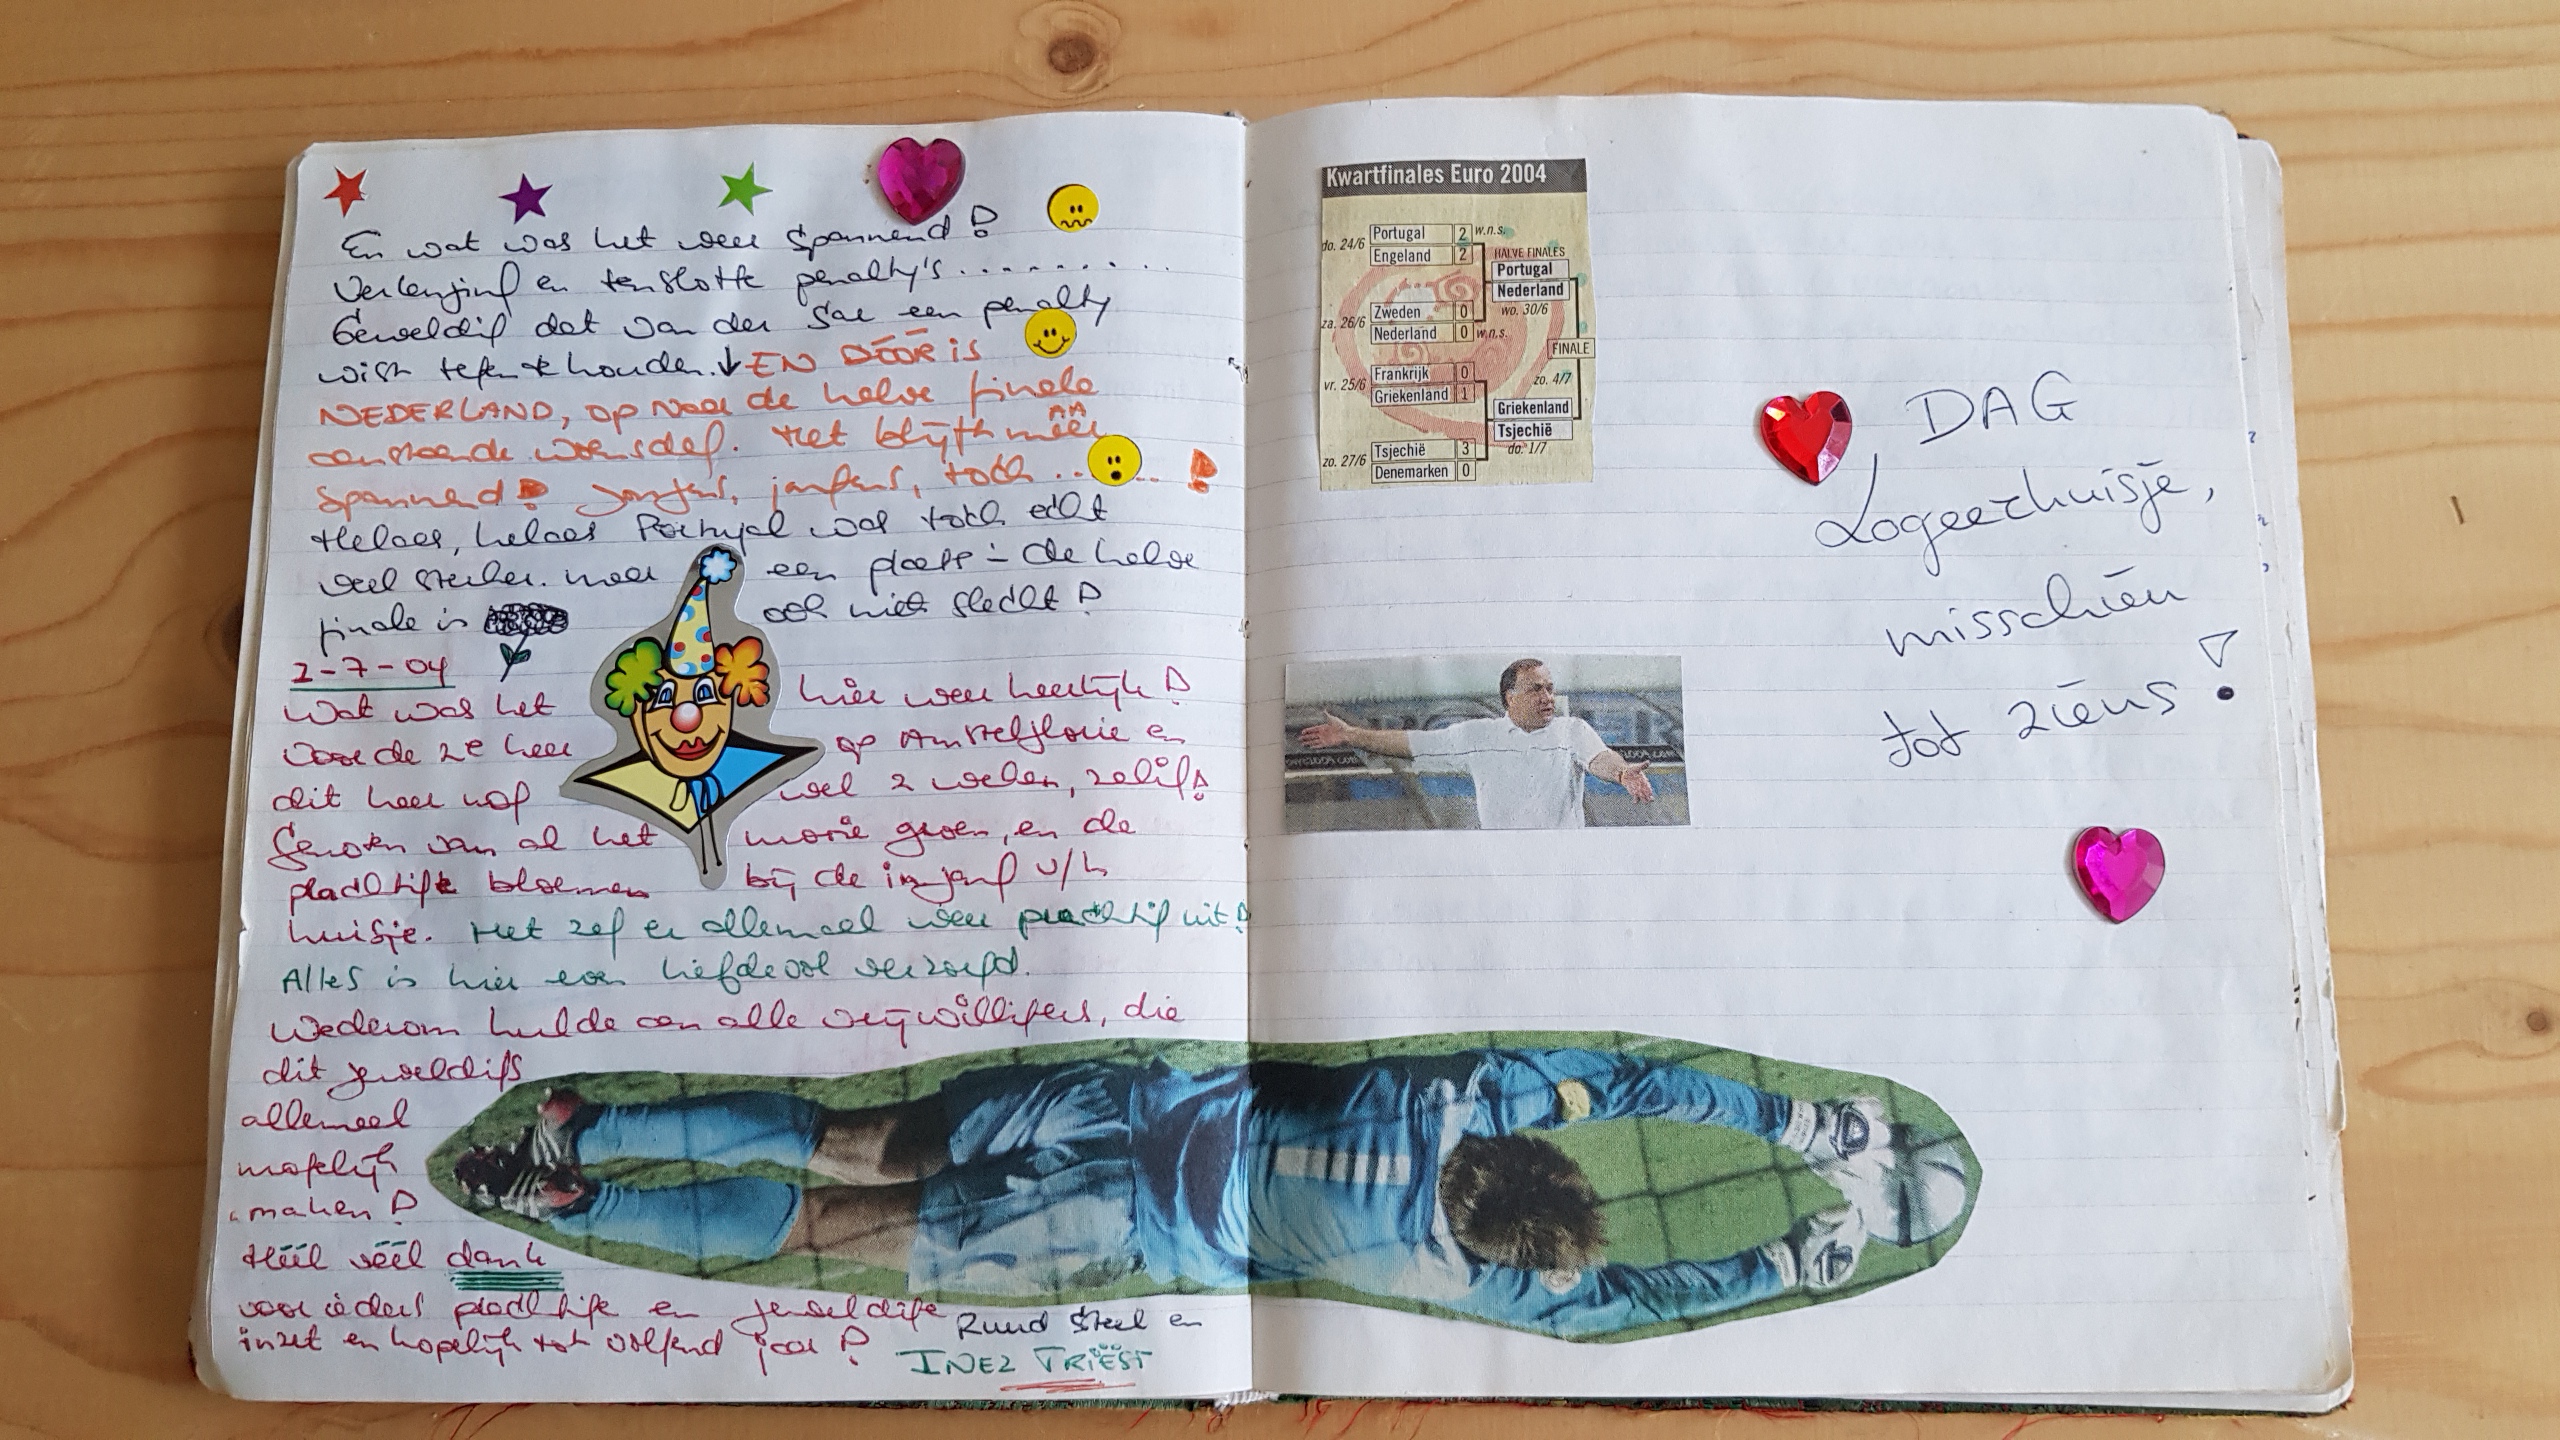 En wat was het weer spannend!
Verlenging en tenslotte penalty's..........
Geweldig dat van der Sar een penalty
wist tegen te houden. ↓ EN DÓÓR is
NEDERLAND, op naar de halve finale
aanstaande woensdag. Het blijft maar
spannend! Jongens, jongens, toch .... !
Helaas, helaas Portugal was toch echt
veel sterker. maar een plaats in de halve
finale is ook niet slecht!
2-7-04
Wat was het hier weer heerlijk!
Voor de 2e keer op Amstelglorie en
dit keer nog wel 2 weken, zalig!
Genoten van al het mooie groen, en de
prachtige bloemen bij de ingang v/h
huisje. Het zag er allemaal weer prachtig uit!
Alles is hier even liefdevol verzorgd.
Wederom hulde aan alle vrijwilligers, die
dit geweldigs
allemaal
mogelijk
maken!
Héél véél dank
voor ieders prachtige en geweldige
inzet en hopelijk tot volgend jaar!
Ruud Steel en
INEZ TRIËST
Kwartfinales Euro 2004
do. 24/6 Portugal 2 w.n.s.
Engeland 2
HALVE FINALES
Portugal
Nederland
wo. 30/6
za. 26/6 Zweden 0
Nederland 0 w.n.s.
FINALE
zo. 4/7
vr. 25/6 Frankrijk 0
Griekenland 1
Griekenland
Tsjechië
do. 1/7
zo. 27/6 Tsjechië 3
Denemarken 0
DAG
Logeerhuisje,
misschien
tot ziens!